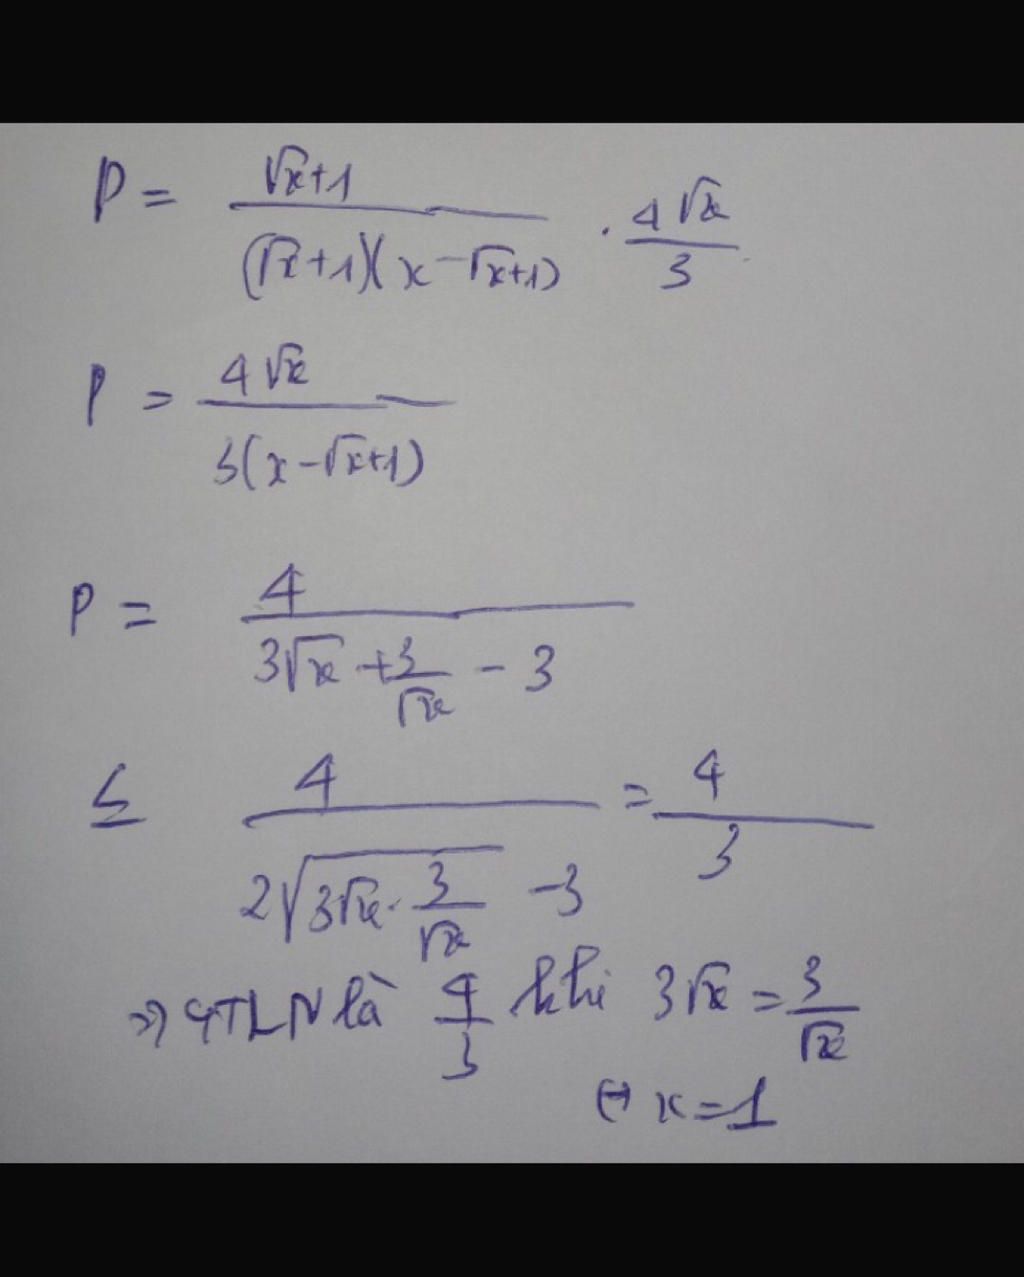 P = \frac{\sqrt{x}+1}{(\sqrt{x}+1)(x-\sqrt{x}+1)} \cdot \frac{4\sqrt{x}}{3}
P = \frac{4\sqrt{x}}{3(x-\sqrt{x}+1)}
P = \frac{4}{3\sqrt{x}+\frac{3}{\sqrt{x}}-3}
≤ \frac{4}{2\sqrt{3\sqrt{x}\cdot\frac{3}{\sqrt{x}}}-3} = \frac{4}{3}
⇒ GTLN là \frac{4}{3} khi 3\sqrt{x} = \frac{3}{\sqrt{x}}
⇔ x = 1